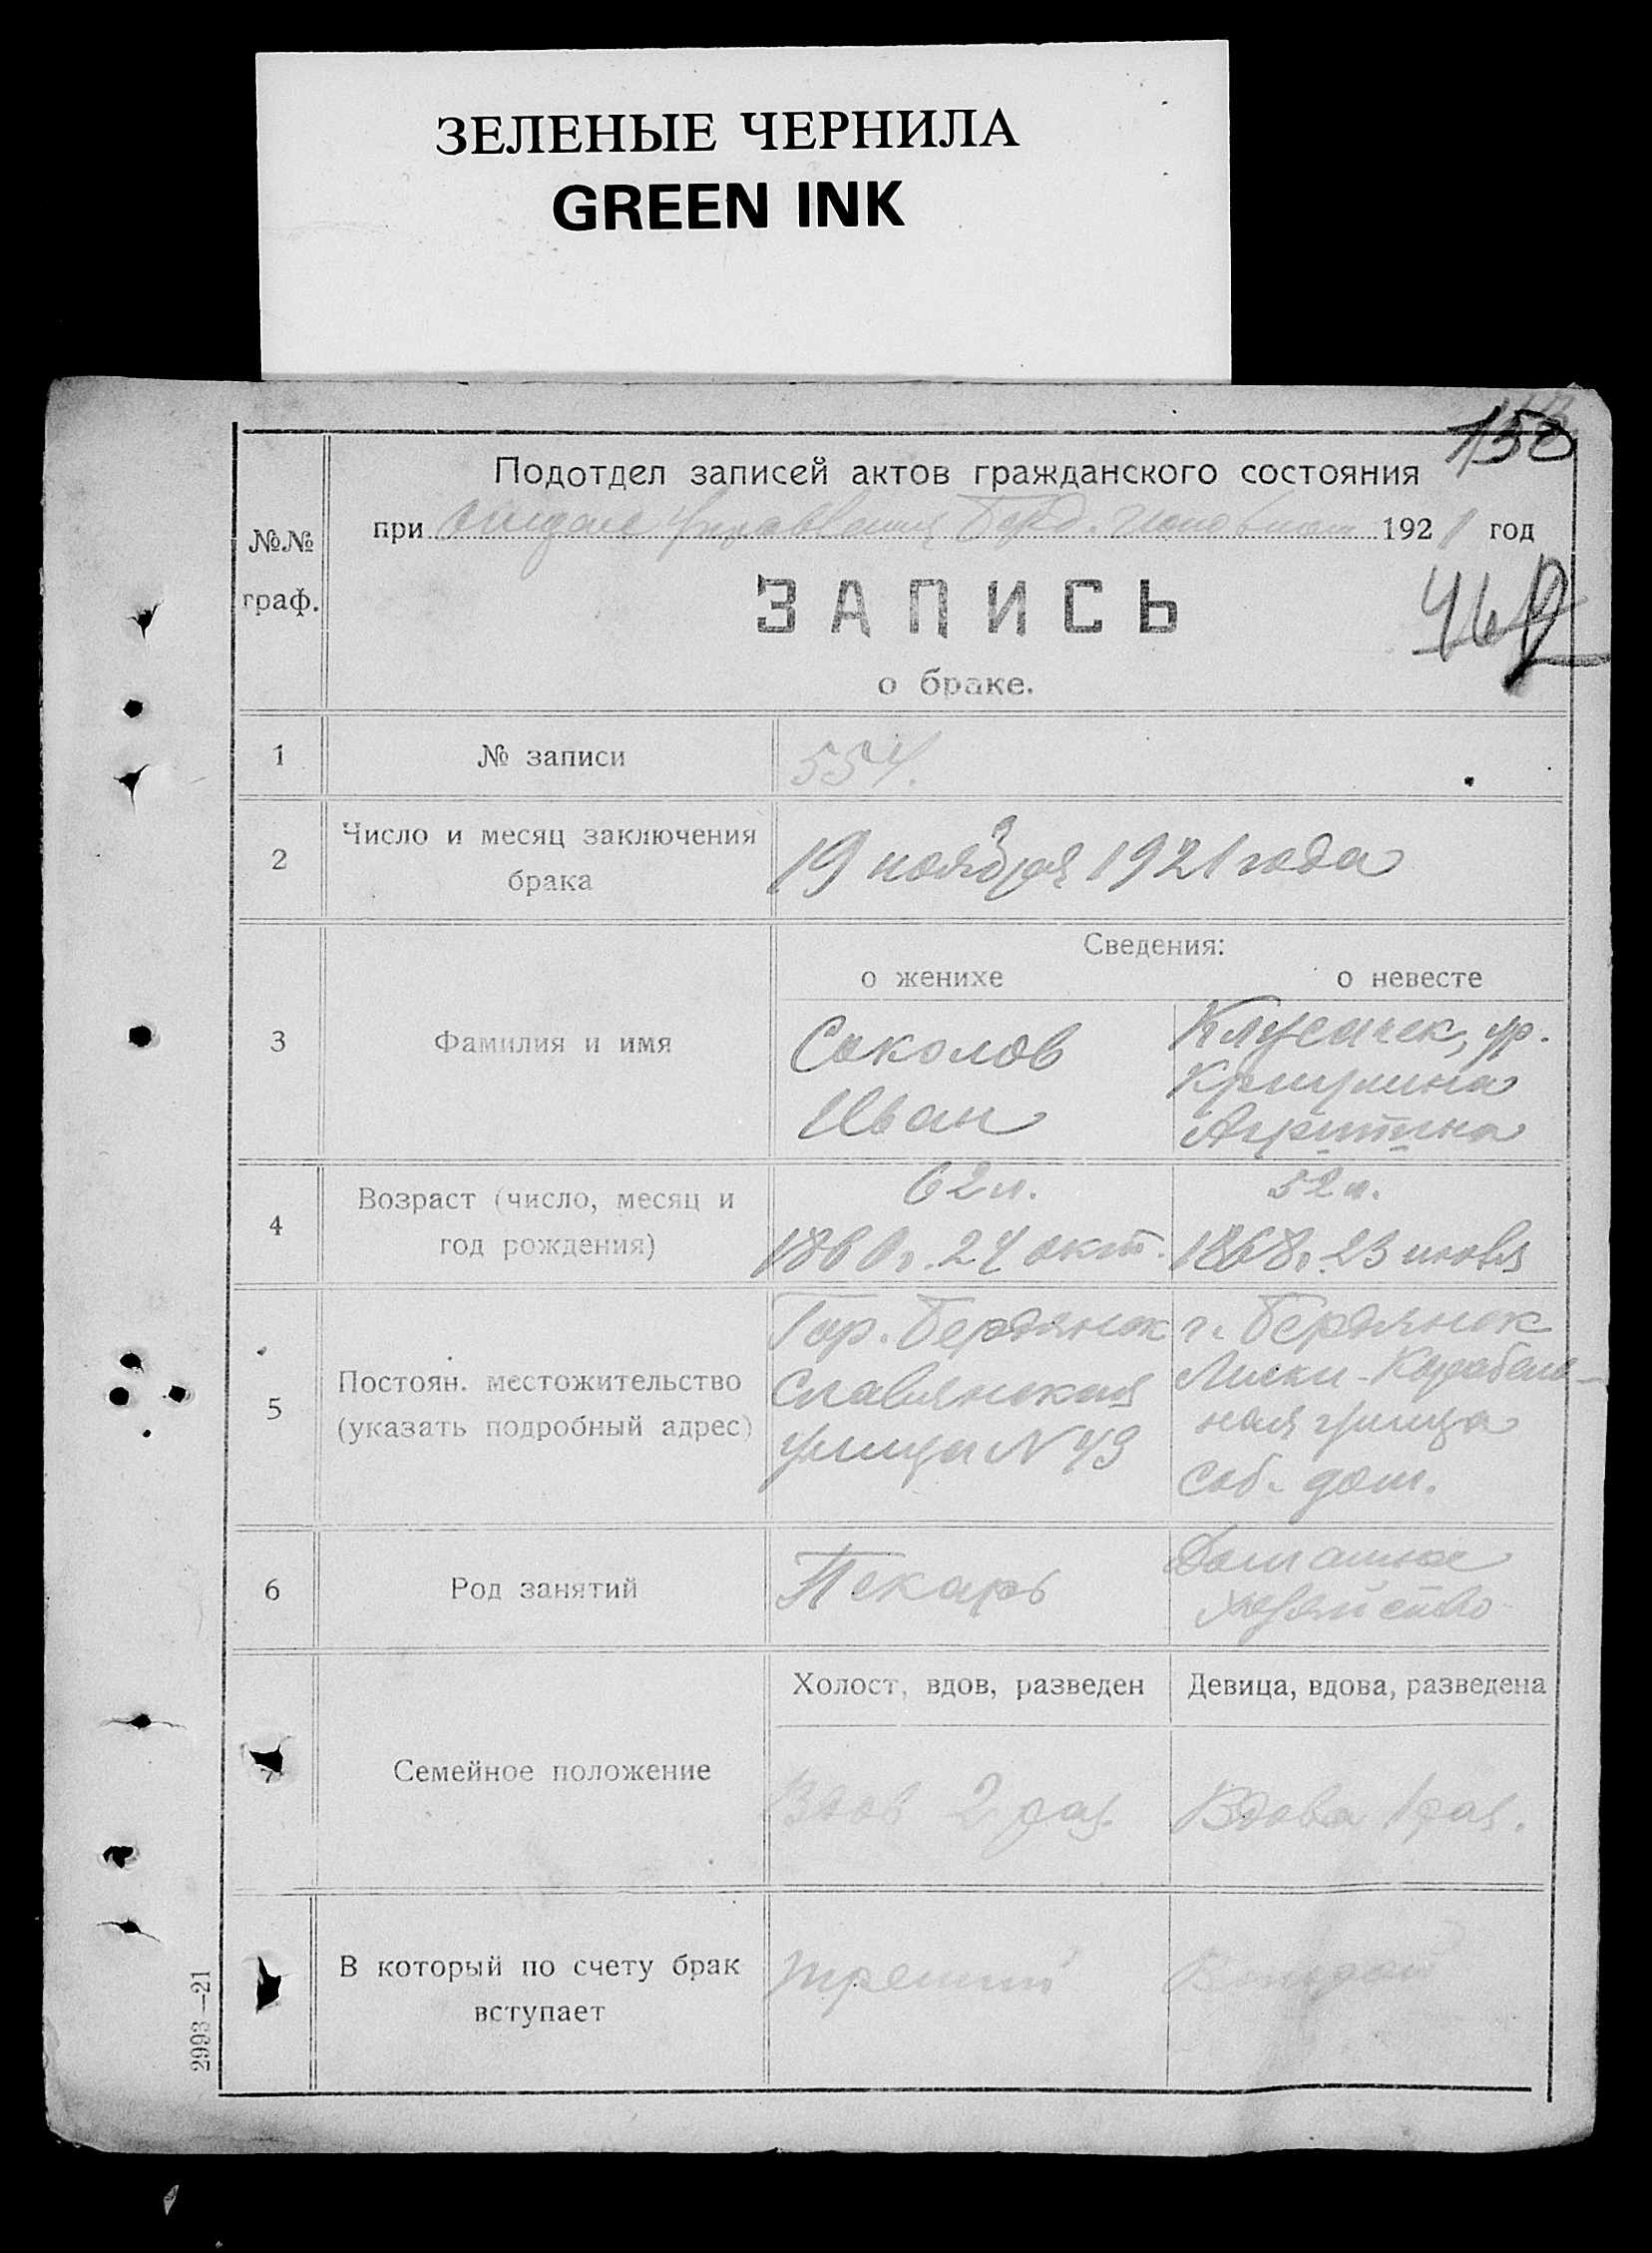 ЗЕЛЕНЫЕ ЧЕРНИЛА
GREEN INK
150
Подотдел записей актов гражданского состояния
№№
граф.
при отделе Управления Берд. 1921 год
ЗАПИСЬ
о браке.
1
№ записи
554.
2
Число и месяц заключения
брака
19 ноября 1921 года
Сведения:
о женихе
о невесте
3
Фамилия и имя
Соколов
Иван
ур.
4
Возраст (число, месяц и
год рождения)
62 л.
1860 г. 24 окт.
52 л.
1868 г. 23 июня
5
Постоян. местожительство
(указать подробный адрес)
Гор. Бердянск
Славянская
улица N 43
г. Бердянск
Лиски - Корабель-
ная улица
соб. дом.
6
Род занятий
Пекарь
Домашнее
хозяйство
7
Семейное положение
Холост, вдов, разведен
Девица, вдова, разведена
Вдов 2 раз.
Вдова 1 раз.
В который по счету брак
вступает
третий
Второй
2993—21